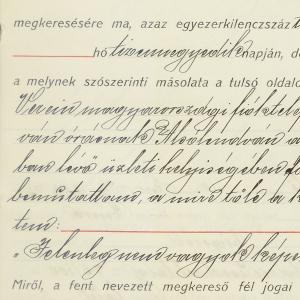 megkeresésére ma, azaz egyezerkilenczszáz
hó tizennegyedik napján, d
a melynek szószerinti másolata a tulsó oldalo
Verein magyarországi fióktele
ván órának Alsólendván a
ban lévő üzleti helyiségében
bemutattam, a mire tőle a k
tem:
„Jelenleg nem vagyok képe
Miről, a fent nevezett megkereső fél jogai